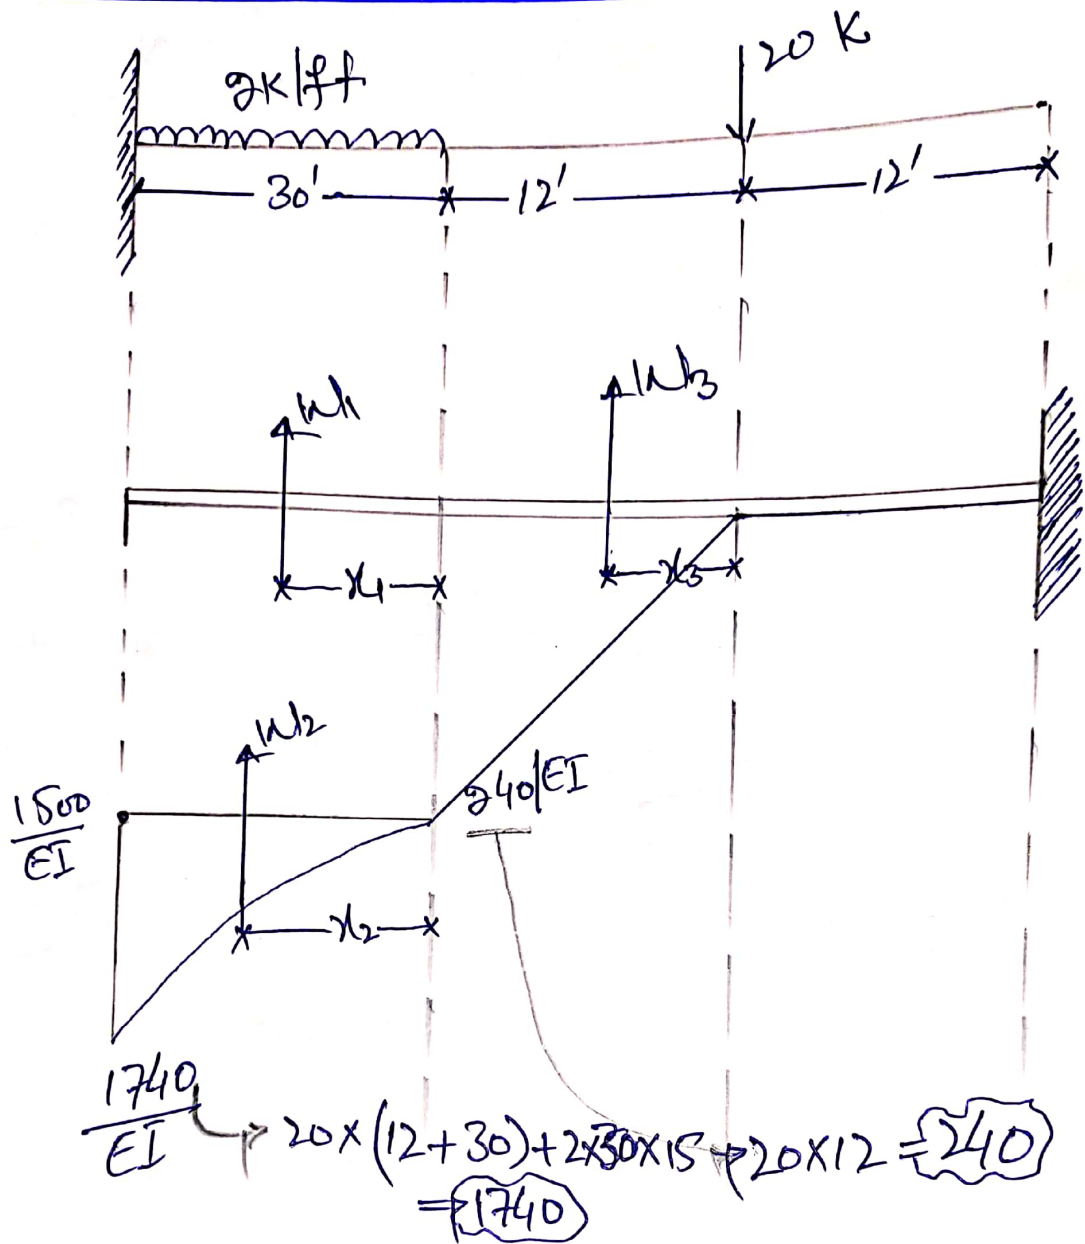 2K/ft
20 K
30' 12' 12'
W1
W3
x1 x3
W2
1500/EI
240/EI
x2
1740/EI → 20×(12+30)+2×30×15 → 20×12 = 240
⇒ 1740